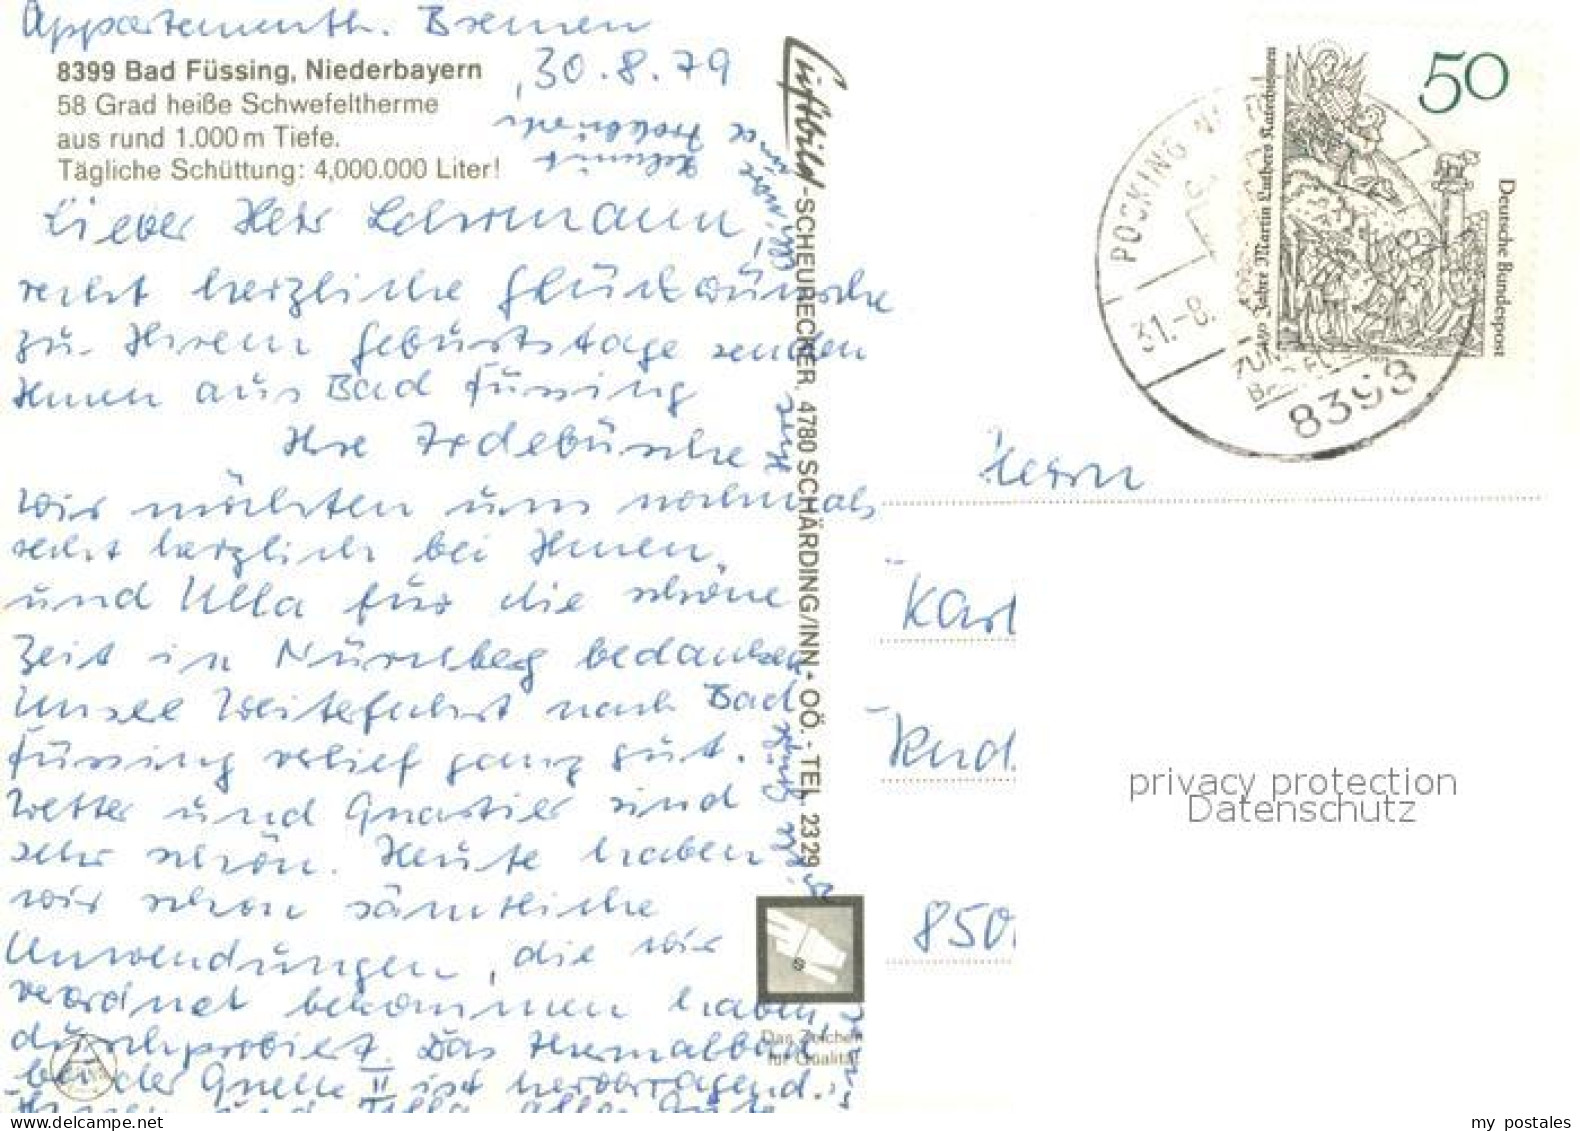 Appartementh. Bremen
8399 Bad Füssing, Niederbayern
30.8.79
58 Grad heiße Schwefeltherme
aus rund 1.000 m Tiefe.
Tägliche Schüttung: 4,000.000 Liter!
Lieber Herr Lehrmann,
recht herzliche Glückwünsche
zu Ihrem Geburtstage senden
Ihnen aus Bad Füssing
Ihre Ardebüsche
Wir möchten uns nochmals
recht herzlich bei Ihnen
und Ulla für die schöne
Zeit in Nürnberg bedanken
Unsere Weiterfahrt nach Bad
Füssing verlief ganz gut.
Wetter und Quartier sind
sehr schön. Heute haben
wir schon sämtliche
Anwendungen, die wir
verordnet bekommen haben,
durchprobiert. Das Thermalbad
bei der Quelle II ist hervorragend.
Ihnen und Ulla alles Gute
Luftbild-SCHEURECKER, 4780 SCHÄRDING/INN • OÖ. - TEL. 2329
Das Zeichen
für Qualität
50
Deutsche Bundespost
450 Jahre Martin Luthers Katechismen
POCKING
31.-8.
8398
Herrn
Karl
850
privacy protection
Datenschutz
my postales